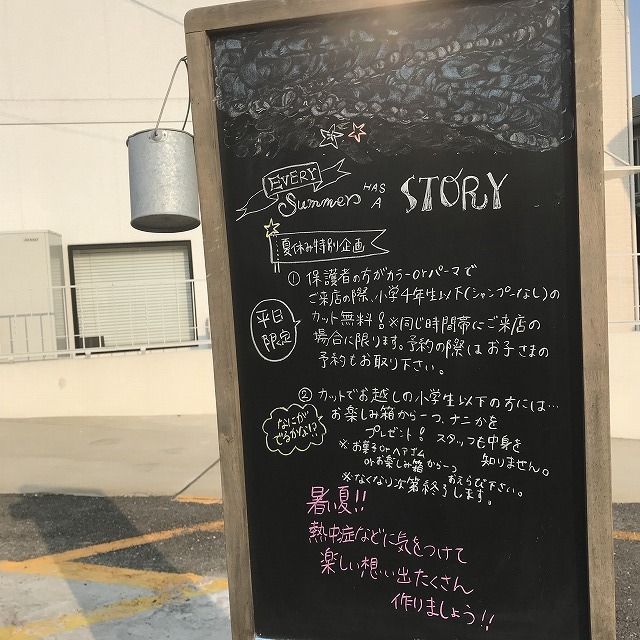 EVERY
Summer HAS A STORY
夏休み特別企画
① 保護者の方がカラーorパーマで
ご来店の際、小学4年生以下(シャンプーなし)の
カット無料!※同じ時間帯にご来店の
場合に限ります。予約の際はお子さまの
予約もお取り下さい。
平日
限定
② カットでお越しの小学生以下の方には…
お楽しみ箱から一つ、ナニかを
プレゼント! スタッフも中身を
知りません。
なにが
でるかな!?
※お菓子orヘアゴム
orお楽しみ箱から一つ
おえらび下さい。
※なくなり次第終了します。
暑い夏!!
熱中症などに気をつけて
楽しい想い出たくさん
作りましょう!!